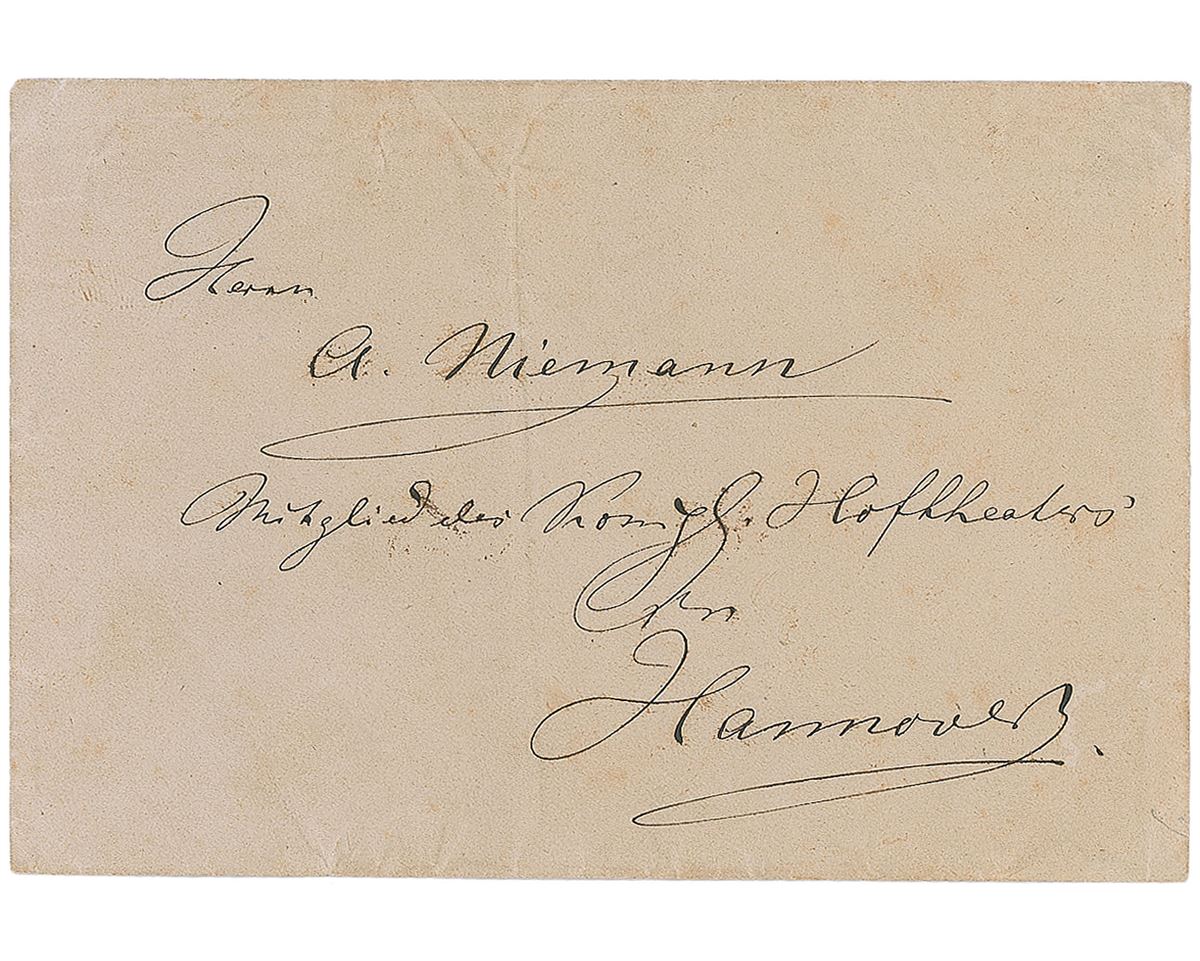 Herrn
A. Niemann
Mitglied des Königl. Hoftheaters
in
Hannover.